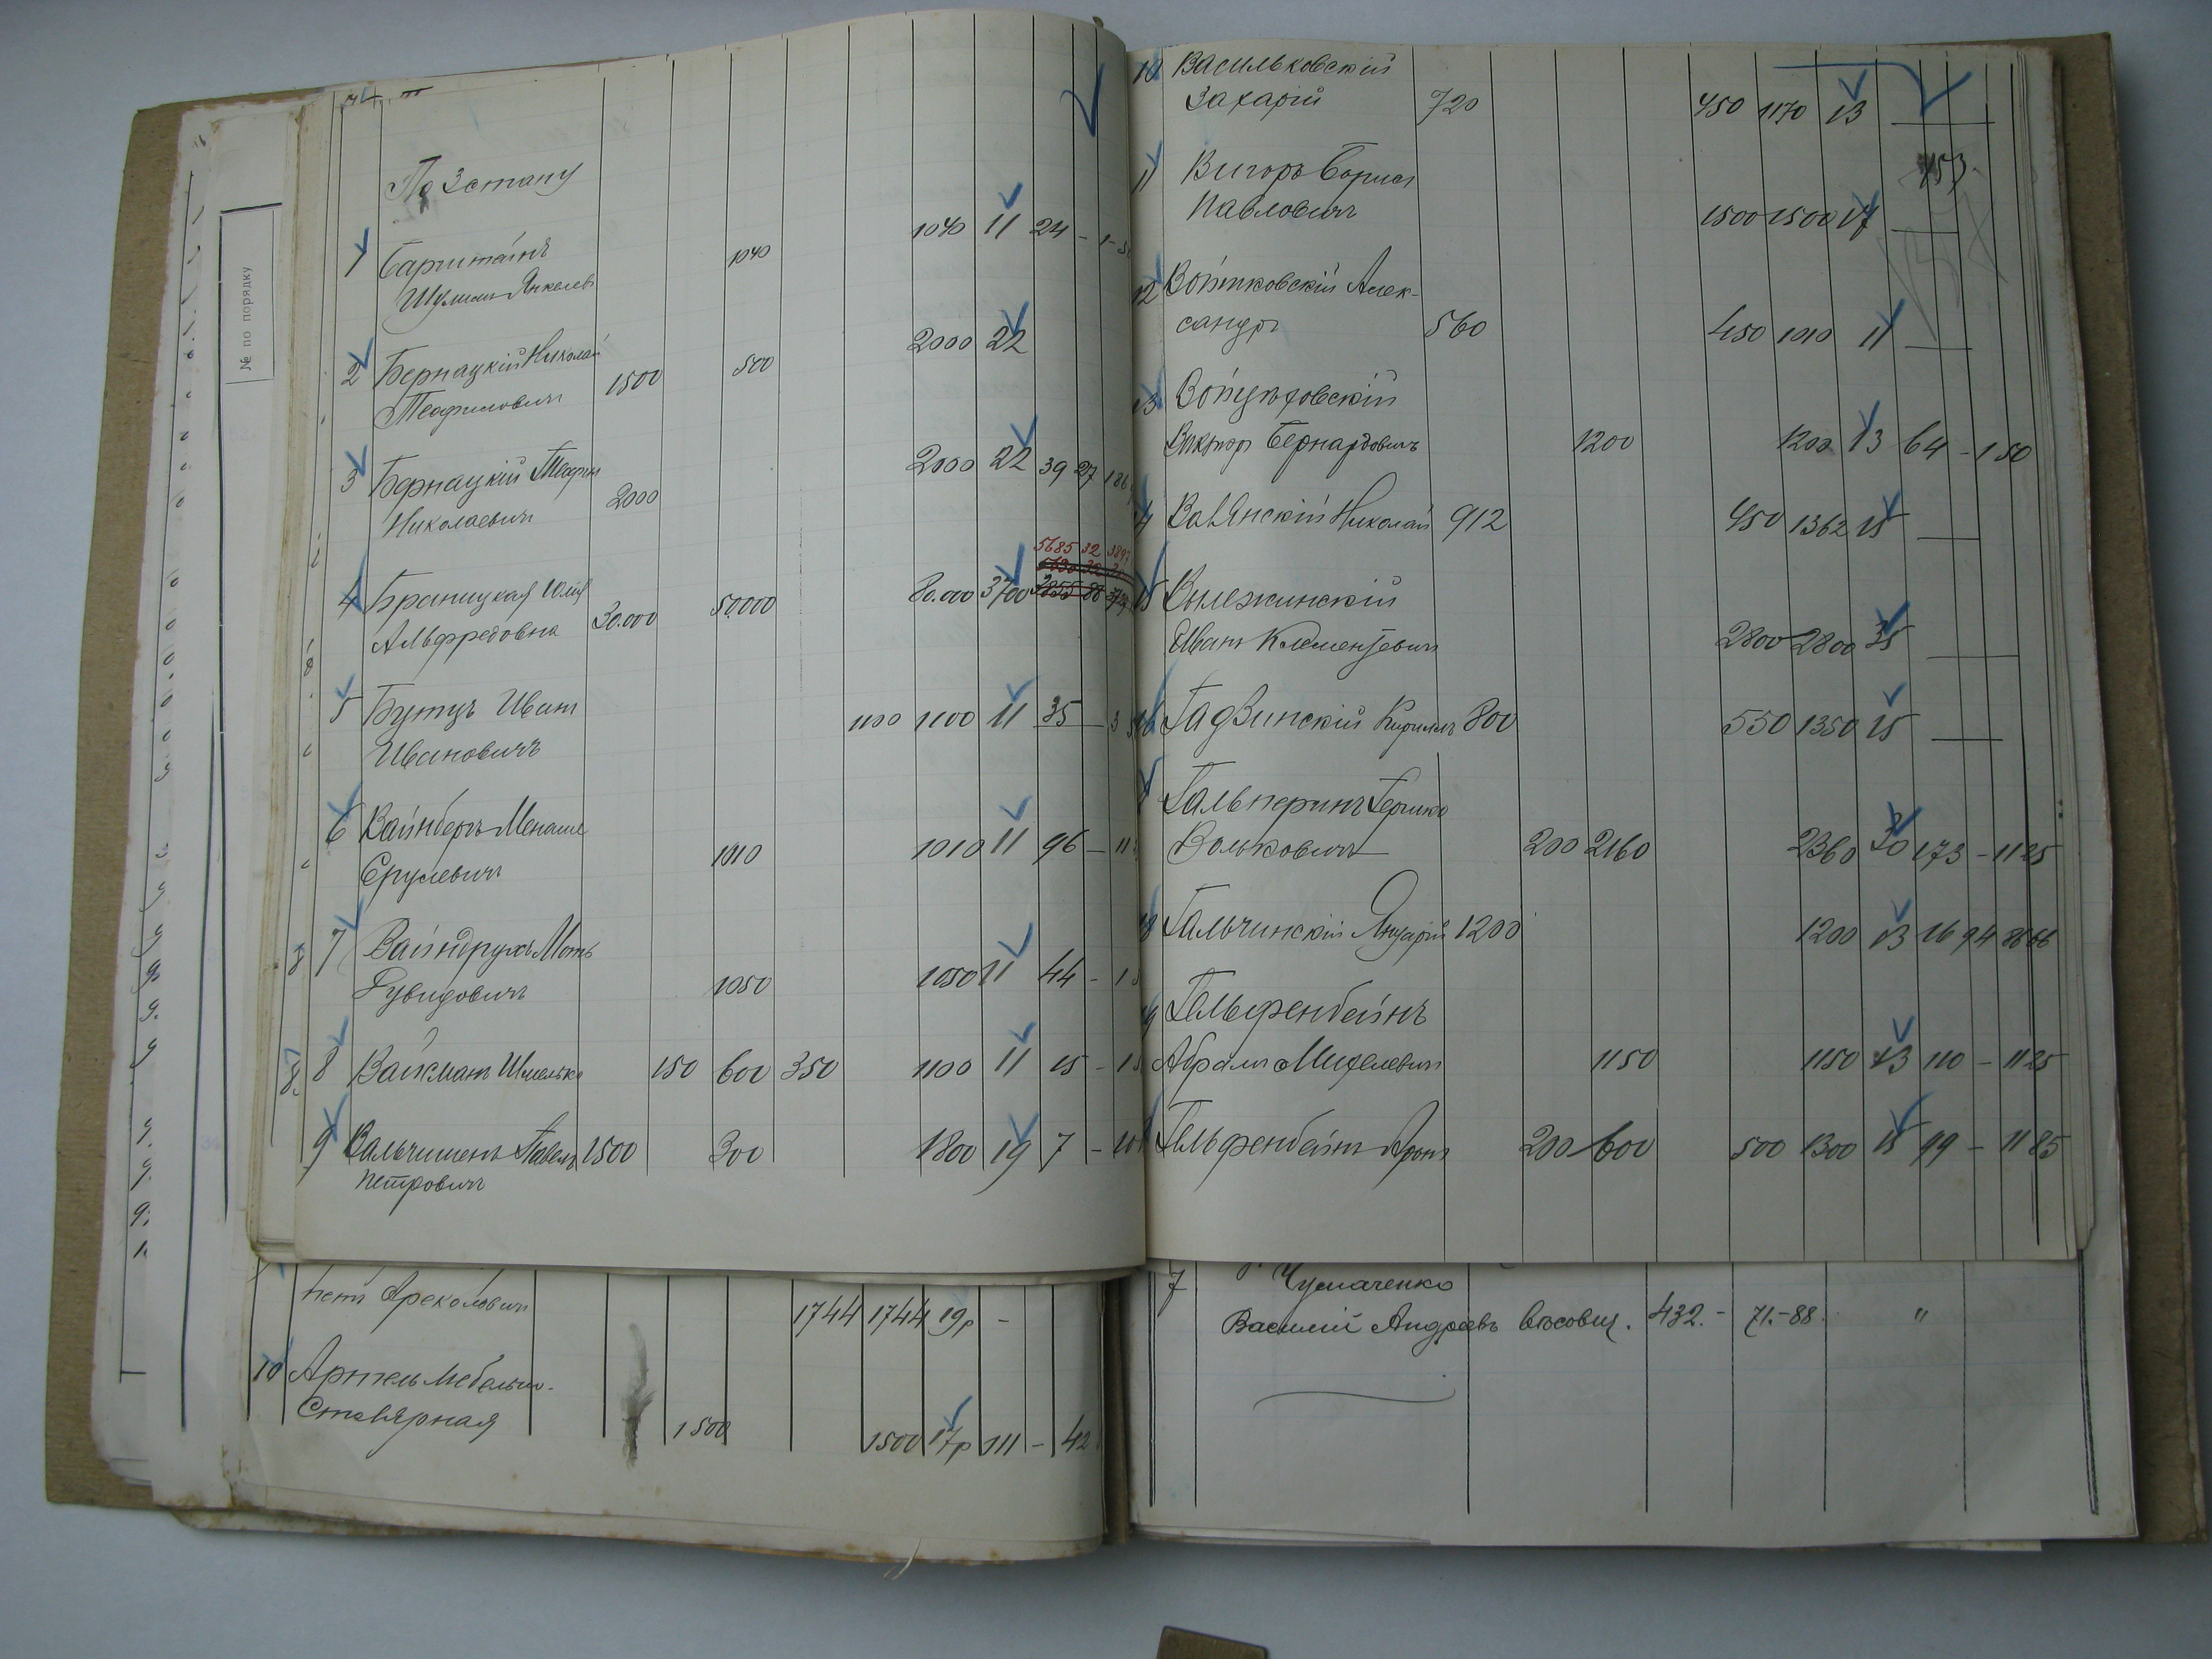 № по порядку
По 3 стану
1040 11 24 - 1-5
1 Барштейнъ 1040
Шулимъ Янкелев
2000 22
2 Бернацкій Николай 1500 500
Теофиловичъ
2000 22 39 27 186
3 Бернацкій Теофил 2000
Николаевичъ
5685 32 389
80.000 3700 3855 88
4 Браницкая Юлія 30.000 50000
Альфредовна
5 Бутцъ Иванъ 1100 1100 11 35 - 3
Ивановичъ
6 Вайнбергъ Менаше 1010 1010 11 96 - 11
Срулевичъ
7 Вайндрухъ Моть
Рувидовичъ 1050 1050 11 44 - 1
8 Вайсманъ Шмелько 150 600 350 1100 11 15 - 1
9 Вальчишенъ Павелъ 1500 300 1800 19 7 -
Петровичъ
10 Васильковскій
Захарій 720 450 1170 13
11 Вигоръ Борисъ 153
Павловичъ 1500 1500 17
12 Войтковскій Алек-
сандръ 560 450 1010 11
13 Войцеховскій
Викторъ Бернардовичъ 1200 1200 13 64 - 1 50
14 Волянскій Николай 912 450 1362 15
15 Вылежинскій
Иванъ Клементьевичъ 2800 2800 35
16 Гадзинскій Кириллъ 800 550 1350 15
Гальперинъ Гершко
Вольковичъ 200 2160 2360 30 173 - 11 25
18 Гальчинскій Януарій 1200 1200 13 16 94 86 66
19 Гельфенбейнъ
Абрамъ Михелевичъ 1150 1150 13 110 - 11 25
Гельфенбейнъ Аронъ 200 600 500 1300 15 99 - 11 85
1744 1744 19р -
10 Артель Мебельно-
Столярная 1500 1500 17р 111 - 42
7 Чумаченко
Василий Андреевъ вѣсовщ. 432.- 71.-88. "